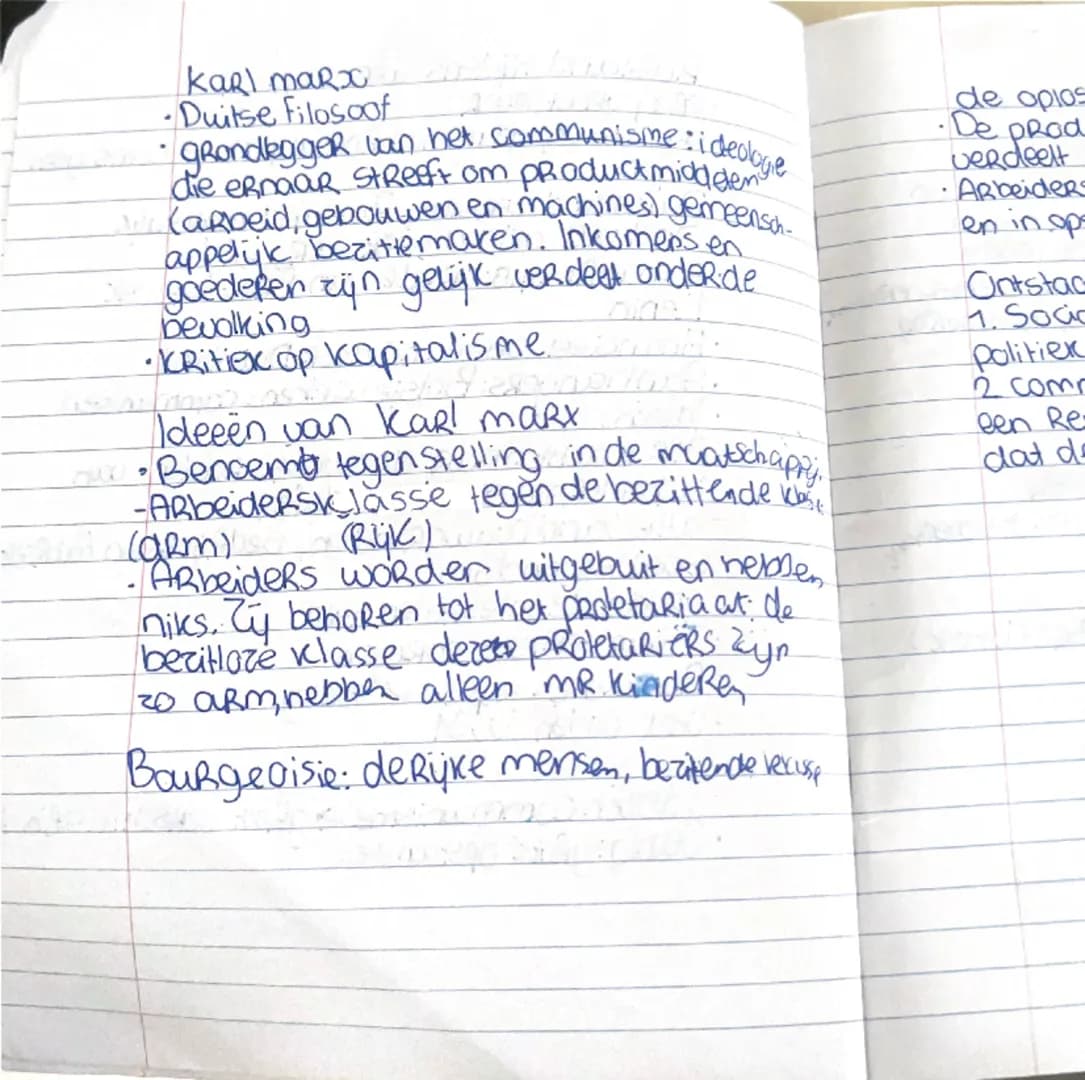 Karl marx
· Duitse Filosoof
· grondlegger van het communisme: ideologie
die ernaar streeft om productmiddelen
(arbeid, gebouwen en machines) gemeensch-
appelijk bezit te maken. Inkomens en
goederen zijn gelijk verdeelt onder de
bevolking
· Kritiek op kapitalisme
Ideeën van Karl marx
· Benoemt tegenstelling in de maatschappij.
- Arbeidersklasse tegen de bezittende klasse
(arm) (Rijk)
· Arbeiders worden uitgebuit en hebben
niks. Zij behoren tot het proletariaat: de
bezitloze klasse deze proletariërs zijn
zo arm, hebben alleen mr kinderen
Bourgeoisie: de rijke mensen, bezittende klasse
de oplos
· De prod
verdeelt
· Arbeiders
en in op
Ontstaa
1. Socia
politiek
2 comm
een Re
dat de